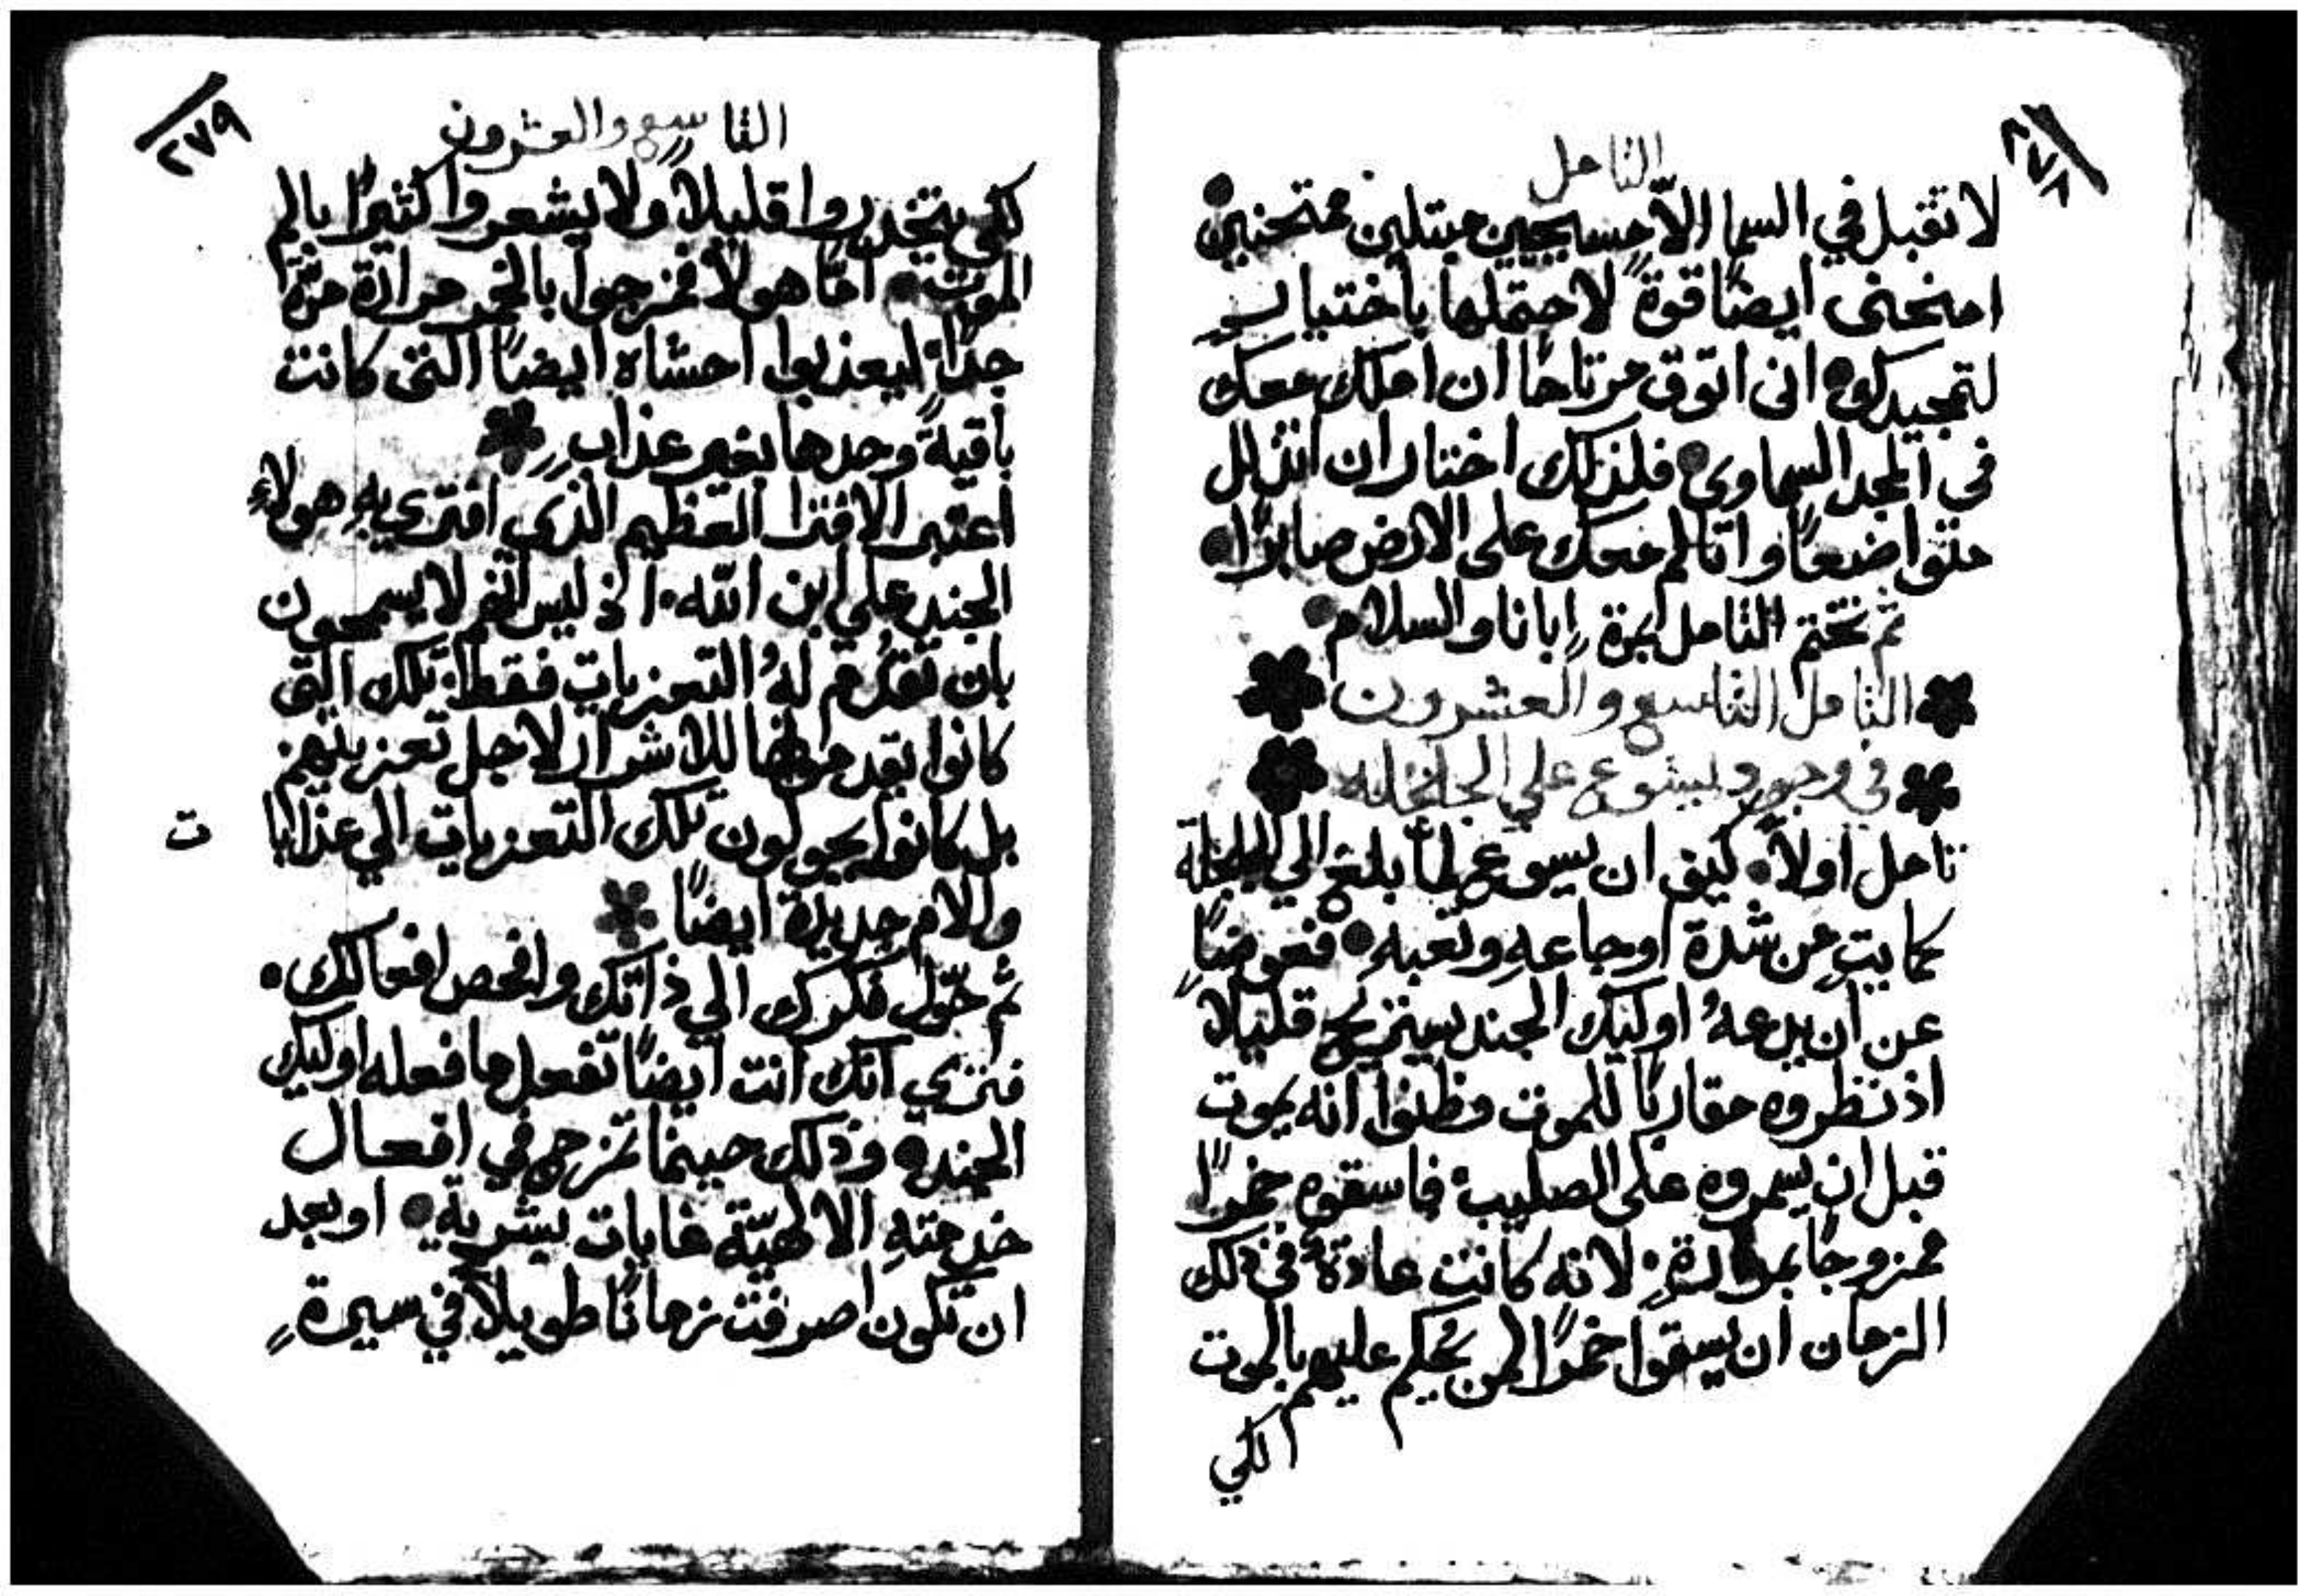 ٢٧٨
التامل
لا تقبل في السما الاّ مسيحيين مبتلين ممتحنين
امنحنى ايضًا قوةً لاحتملها باختيار
لتمجيدك انى اتوق مرتاحًا ان املك معك
في المجد السماوى فلذلك اختار ان اتذلل
متواضعًا واتالم معك على الارض صابرًا
ثم تختم التامل بمرة ابانا والسلام
التامل التاسع والعشرون
في وجود يسوع علي الجلجله
تامل اولاً كيف ان يسوع لما بلغ الي الجلجلة
كمايتٍ من شدة اوجاعهِ وتعبهِ فعوضًا
عن ان يدعهُ اوليك الجند يستريح قليلاً
اذ نظروه مقاربًا للموت وظنوا انه يموت
قبل ان يسمروه على الصليب فاسقوه خمرًا
ممزوجًا بمرارةٍ لانه كانت عادةً في ذلك
الزمان ان يسقوا خمرًا لمن يُحكم عليهم بالموت
لكي
٢٧٩
التاسع والعشرون
لكي يتخدروا قليلاً ولا يشعروا كثيرًا بالم
الموت امّا هولا فمزجوا بالخمر مرارة مرّة
جدًا ليعذبوا احشاه ايضًا التى كانت
باقيةً وحدها بغير عذاب
اعتبر الافترا العظيم الذي افترى بهِ هولاءِ
الجند علي ابن الله اذ ليس انهم لا يسمحون
بان تقدّم لهُ التعزيات فقط تلك التى
كانوا يقدمونها للاشرار لاجل تعزيتهم
بل كانوا يحولون تلك التعزيات الي عذابا
ت
والام جديدة ايضًا
ثم حوّل فكرك الي ذاتك وافحص افعالك
فترى انك انت ايضًا تفعل ما فعله اوليك
الجند وذلك حينما تمزج في افعال
خدمتهِ الالهيّة غايات بشرية او بعد
ان تكون اصرفت زمانًا طويلاً في سيرةٍ